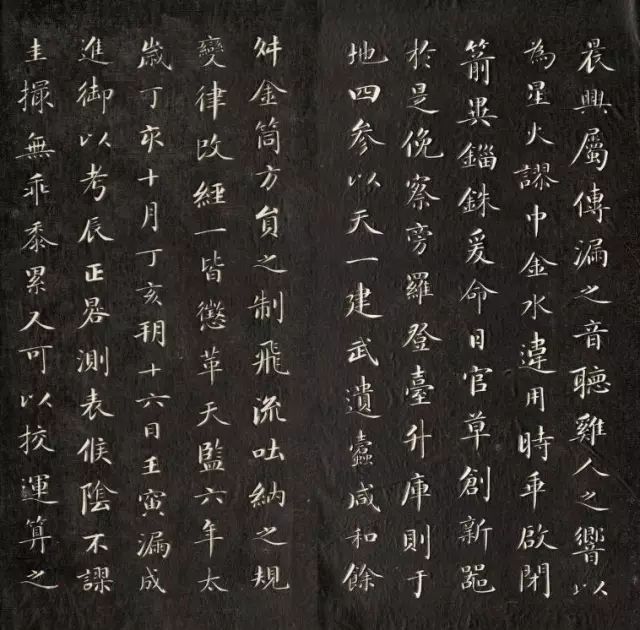 晨興屬傳漏之音聽雞人之響以
為星火謬中金水違用時乖啟閉
箭異錙銖爰命日官草創新器
於是俛察旁羅登臺升庫則于
地四参以天一建武遺蠹咸和餘
舛金筒方員之制飛流吐納之規
變律改經一皆懲革天監六年太
歲丁亥十月丁亥朔十六日壬寅漏成
進御以考辰正晷測表候陰不謬
圭撮無乖黍累又可以挍運算之